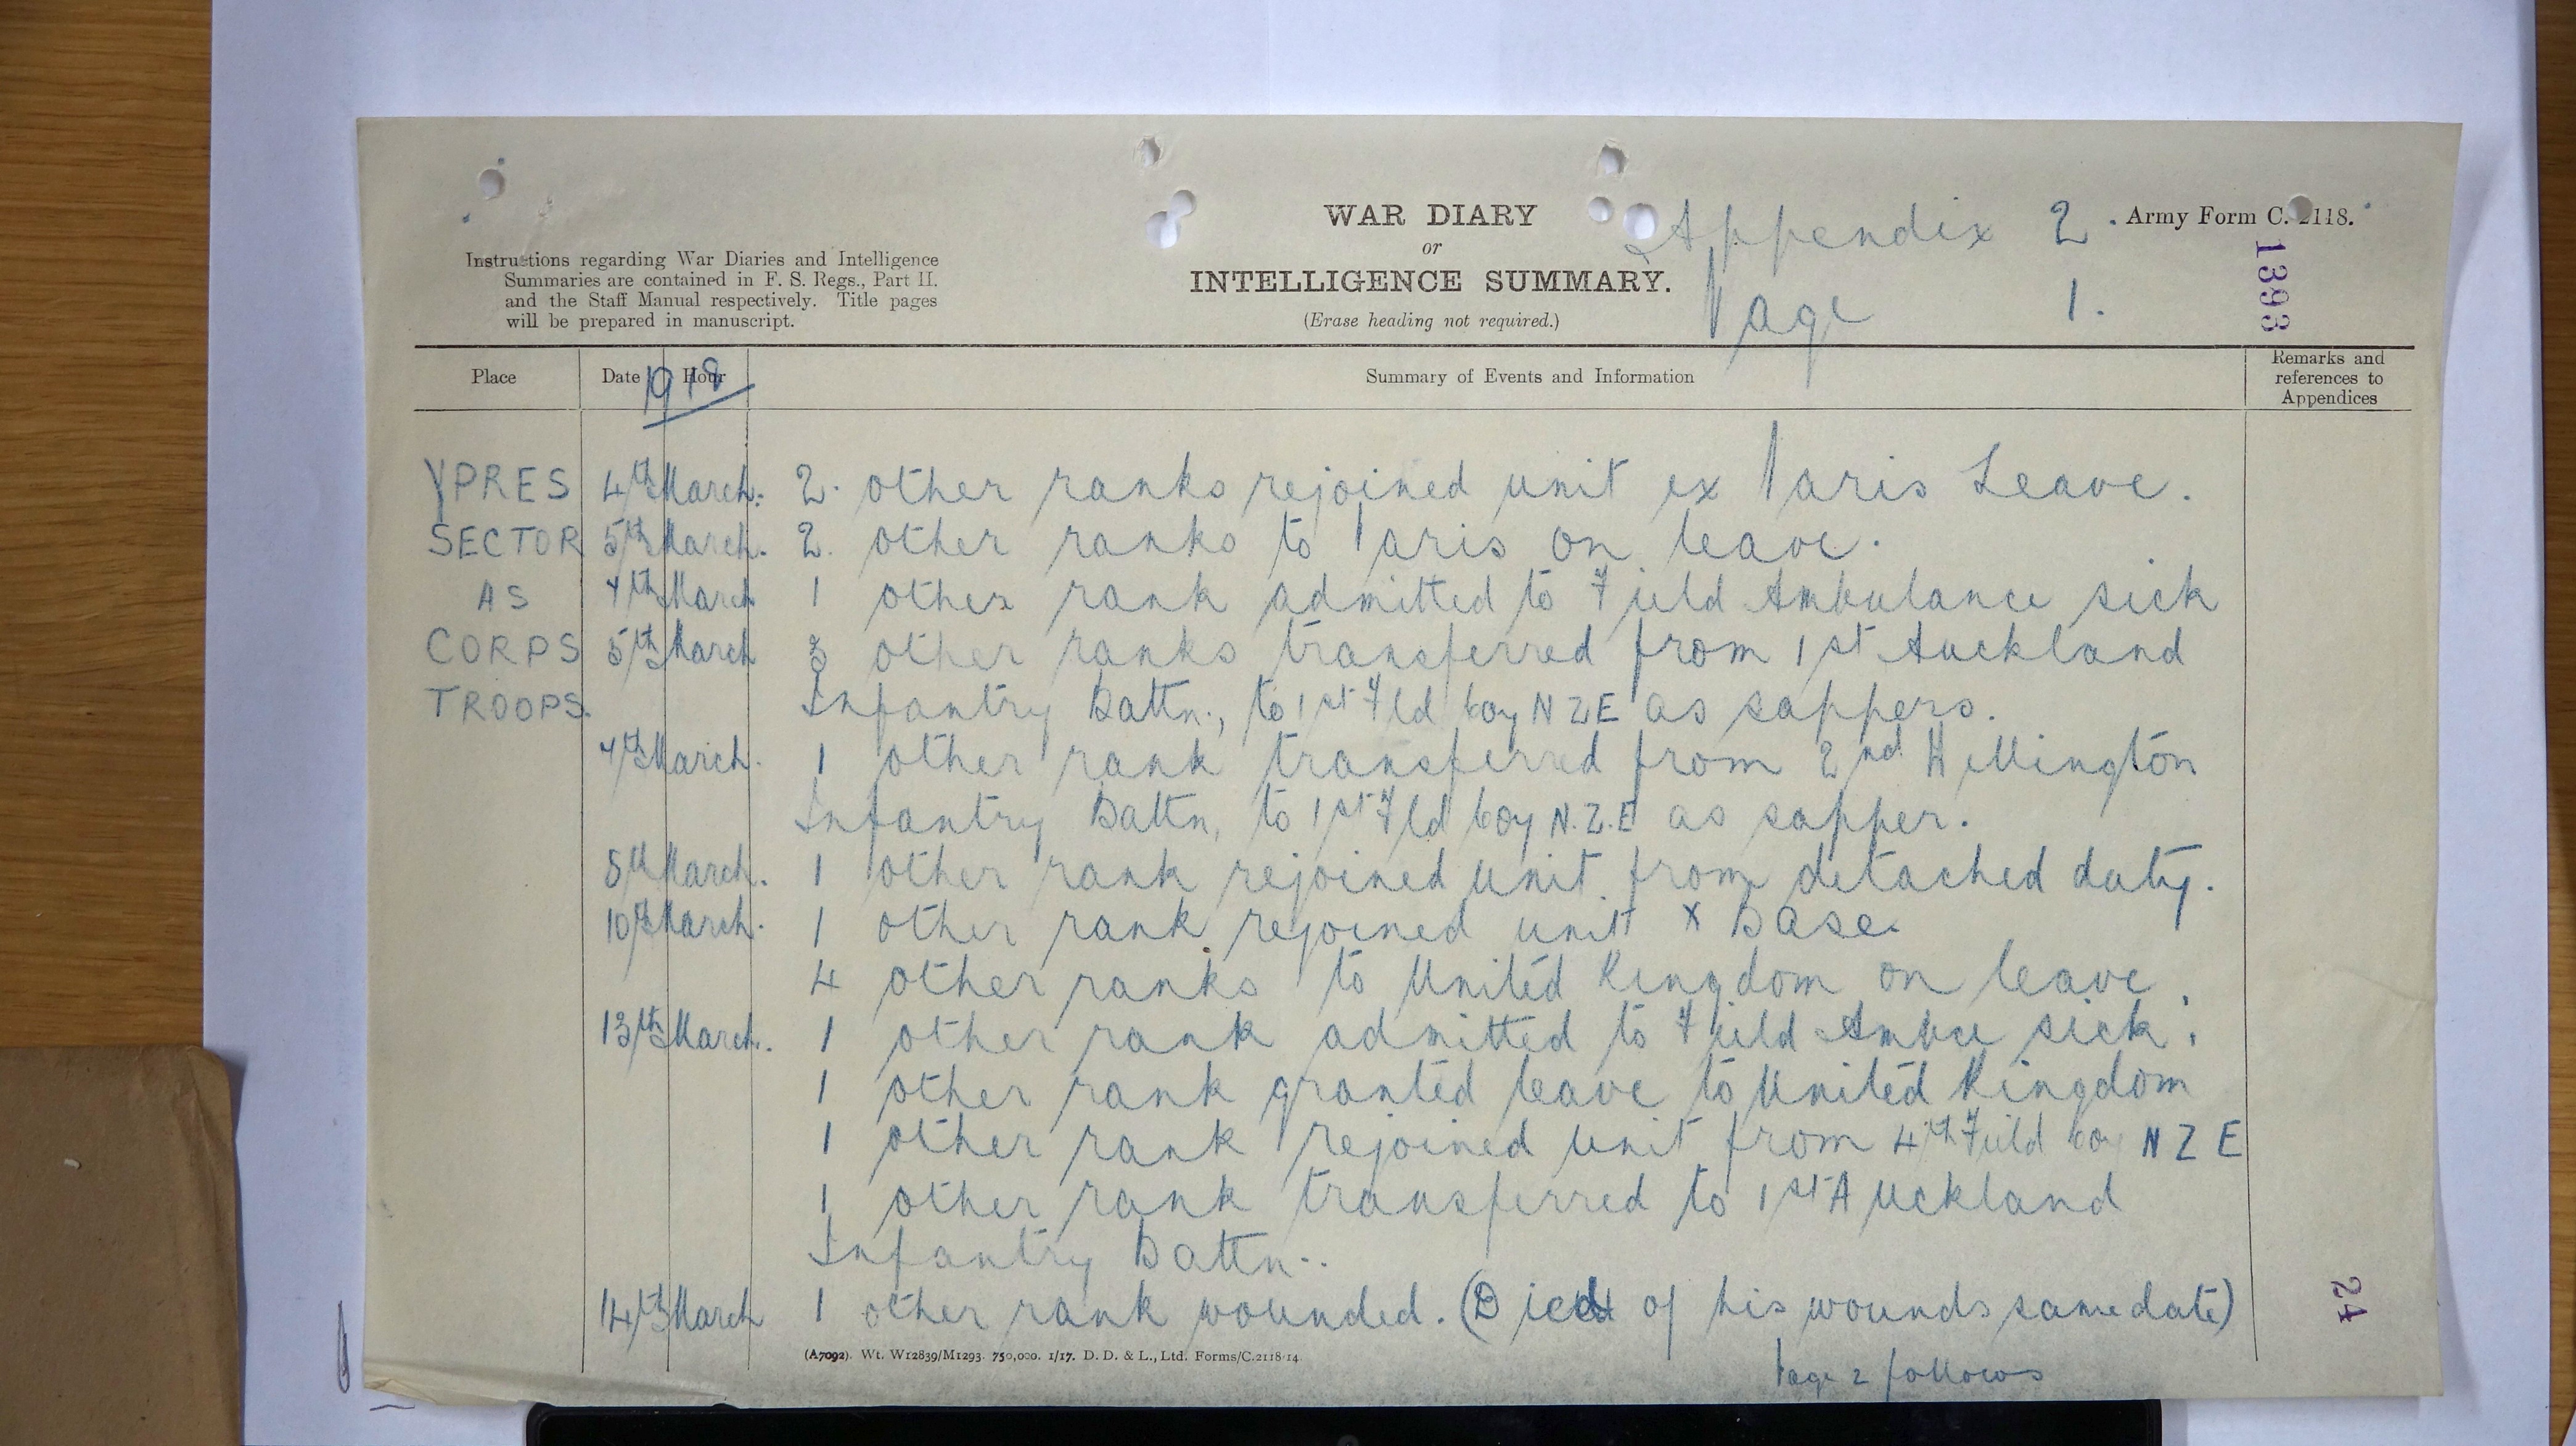 WAR DIARY
or
INTELLIGENCE SUMMARY.
(Erase heading not required.)
Appendix 2.
Page 1.
Army Form C. 2118.
1393
Instructions regarding War Diaries and Intelligence
Summaries are contained in F. S. Regs., Part II.
and the Staff Manual respectively. Title pages
will be prepared in manuscript.
Place Date Hour Summary of Events and Information Remarks and references to Appendices
1918
YPRES 4th March. 2. other ranks rejoined unit ex Paris Leave.
SECTOR 5th March. 2. other ranks to Paris on leave.
AS March 1 other rank admitted to Field Ambulance sick
CORPS 5th March 3 other ranks transferred from 1st Auckland
TROOPS. Infantry Battn., to 1st Fld Coy NZE as sappers.
March. 1 other rank transferred from 2nd Wellington
Infantry Battn, to 1st Fld Coy N.Z.E as sapper.
March. 1 other rank rejoined unit from detached duty.
10th March. 1 other rank rejoined unit x Base.
4 other ranks to United Kingdom on leave.
13th March. 1 other rank admitted to Field Ambce sick.
1 other rank granted leave to United Kingdom
1 other rank rejoined unit from 4th Field Coy NZE
1 other rank transferred to 1st Auckland
Infantry Battn..
14th March 1 other rank wounded. (Died of his wounds same date)
(A7092). Wt. W12839/M1293. 750,000. 1/17. D. D. & L., Ltd. Forms/C.2118/14.
Page 2 follows
24